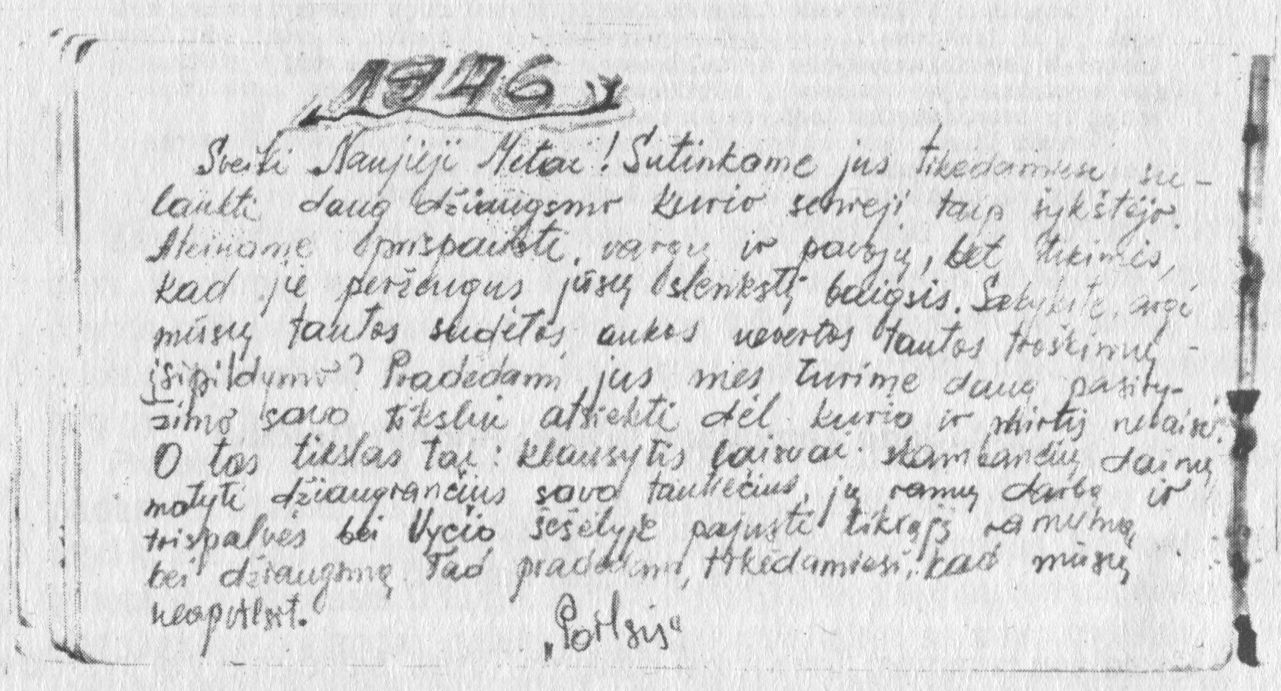 1946
Sveiki Naujieji Metai! Sutinkame jus tikėdamiesi su-
laukti daug džiaugsmo kurio senieji taip šykštėjo.
Ateiname prispausti vargų ir pavojų, bet tikimės,
kad jie peržengus jūsų slenkstį baigsis. Sakykite, argi
mūsų tautos sudėtos aukos nevertos tautos troškimų
išsipildymo? Pradėdami jus mes turime daug pasiry-
žimo savo tikslui atsiekti dėl kurio ir mirtis nebaisi.
O tas tikslas tai: klausytis laisvai skambančių dainų
matyti džiaugiančius savo tautiečius, jų ramų darbą ir
trispalvės bei Vyčio šešėlyje pajusti tikrąjį ramumą
bei džiaugsmą Tad pradedam, tikėdamiesi, kad mūsų
neapvilsit.